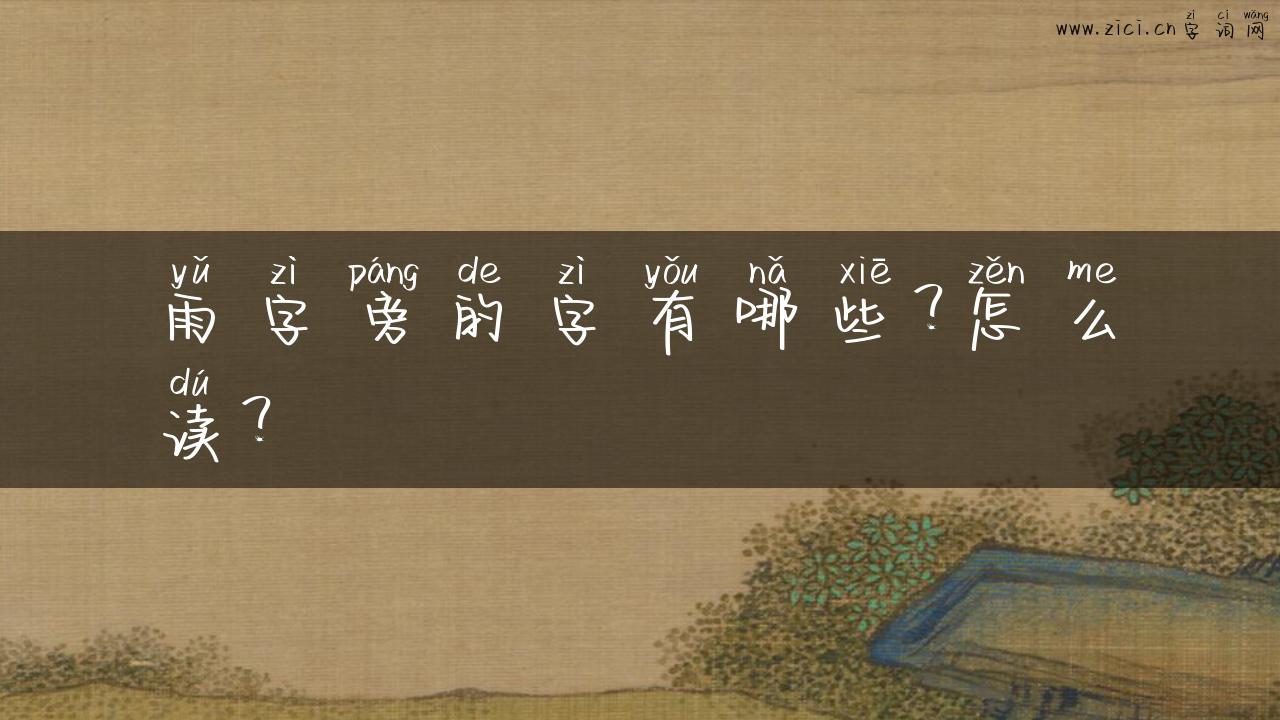 zì cí wǎng
www.zici.cn字词网
yǔ zì páng de zì yǒu nǎ xiē zěn me
雨字旁的字有哪些？怎么
dú
读？